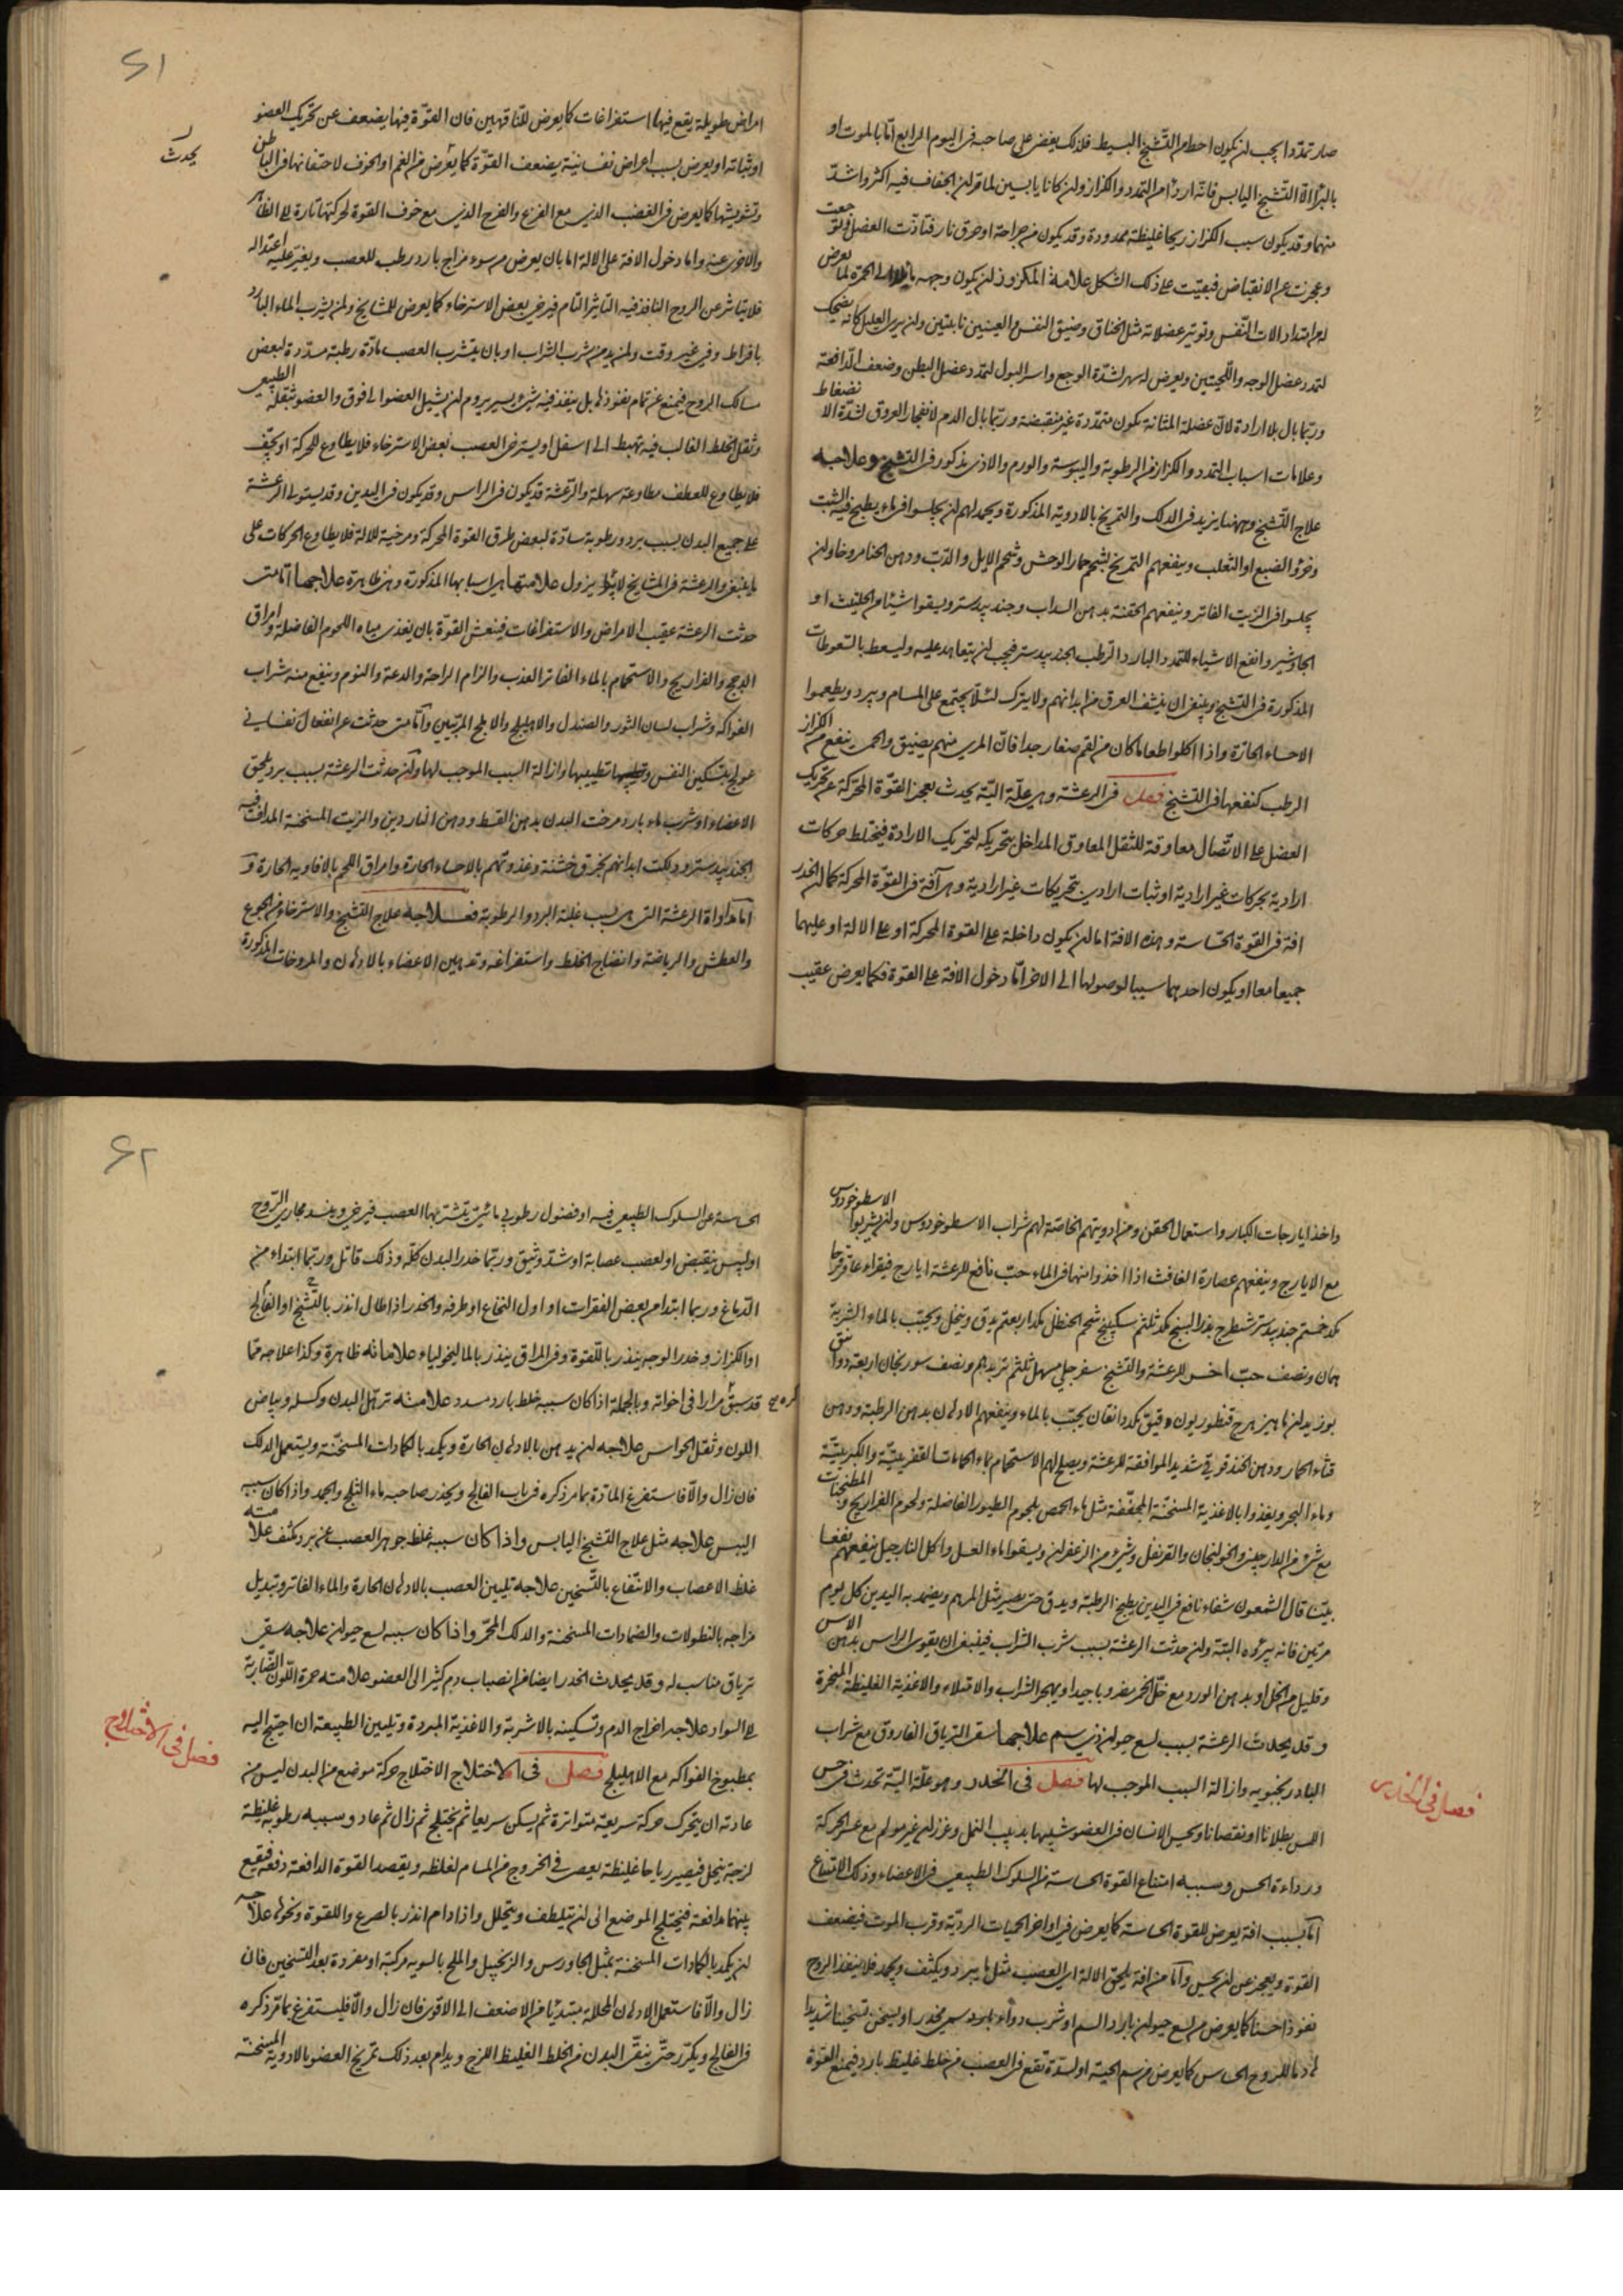 صار تمدّدا يجب ان يكون احط من التّشنّج البسيط فلذلك يفضى على صاحبه فى اليوم الرابع امّا بالموت او
بالبرأ الّا التّشنّج اليابس فانّه اردأ من التمدد والكزاز ولن كانا يابسين لما قر لن الجفاف فيه اكثر واشدّ
منهما وقد يكون سبب الكزاز ريحا غليظة ممدودة وقد يكون من جراحة او حرق نار فتأذّت العضل وتوجعت
وعجزت عن الانقباض فبقيت على ذلك الشكل علامة المكزوز ان يكون وجهه مائلا الى الحمرة لما يعرض
له من امتداد الات التّنفس وتوتير عضلاته مثل الخناق وضيق النفس والعينين ناتئتين ولن يرى العليل كانّه يضحك
لتمدد عضل الوجه واللّحيتين ويعرض له سهر لشدّة الوجع واسر البول لتمدد عضل البطن وضعف الدّافعة
وربّما بال بلا ارادة لانّ عضلة المثانة يكون متمدّدة غير منقبضة وربّما بال الدم لانفجار العروق لشدّة الانضغاط
وعلامات اسباب التمدد والكزاز من الرطوبة واليبوسة والورم والاذى يذكور فى التشنّج وعلاجه
علاج التّشنّج وههنا يزيد فى الدلك والتمريخ بالادوية المذكورة ويحمد لهم ان يجلسوا فى ماء يطبخ فيه الشبت
وخرؤ الضبع او الثعلب وينفعهم التمريخ بشحم حمار الوحش وشحم الايل والدّبّ ودهن الحنا مروخا ولن
يجلسوا فى الزيت الفاتر وينفعهم الحقنة بدهن السداب وجندبيدستر ويسقوا شيئا من الحلتيت او
الجاوشير وانفع الاشياء للتمدد البارد الرطب الجندبيدستر فيجب ان يتعاهد عليه وليسعط بالسّعوطات
المذكورة فى التشنّج وينبغى ان ينشف العرق من ابدانهم ولا يترك لئلّا يجتمع على المسام ويبرد ويطعموا
الاحساء الحارّة واذا اكلوا طعاما كان من لقم صغار جدا فانّ المرى منهم يضيق والحمى ينفع من الكزاز
الرطب كنفعها فى التشنّج فصل فى الرعشة وهى علّة اليّة يحدث بعجز القوّة المحرّكة عن تحريك
العضل على الاتّصال معاوقة للثقل المعاوق المداخل بتحريكه لتحريك الارادة فيختلط حركات
ارادية بحركات غير ارادية او ثبات ارادى بتحريكات غير ارادية وهى آفة فى القوّة المحركة كما ان الخدر
افة فى القوة الحسّاسة وهذه الافة اما ان يكون داخلة على القوة المحركة او على الالة او عليهما
جميعا معا او يكون احدهما سببا لوصولها الى الاخر امّا دخول الافة على القوة فكما يعرض عقيب
۶۱
امراض طويلة يقع فيها استفراغات كما يعرض للنّاقهين فان القوّة فيها يضعف عن تحريك العضو
او ثباته او يعرض بسبب اعراض نفسانيّة يضعف القوّة كما يعرض فى الغم او الخوف لاختفائها فى الباطن
يحدث
وتشويشها كما يعرض فى الغضب الذى مع الفزع والفرح الذى مع خوف القوة لحركتها تارة الى الظاهر
والاخرى عنه واما دخول الافة على الالة اما بان يعرض من سوء مزاج بارد رطب للعصب ويغيّر عليه اعتداله
فلا يتاثر عن الروح النافذ فيه التاثر التام فيرخى بعض الاسترخاء كما يعرض للمشايخ ولمن يشرب الماء البارد
بافراط وفى غير وقت ولمن يدمن شرب الشراب او بان يتشرب العصب مادّة رطبة مسدّدة لبعض
مسالك الروح فيمنع عن تمام نفوذه بل ينفذ فيه شىء يسير يروم ان يشيل العضو الى فوق والعضو بثقله الطبيعى
وثقل الخلط الغالب فيه تهبط الى اسفل او يسترخى العصب بعض الاسترخاء فلا يطاوع للحركة او يجفّ
فلا يطاوع للعطف مطاوعة سهلة والرّعشة قد يكون فى الراس وقد يكون فى اليدين وقد يستولى الرعشة
على جميع البدن بسبب برد ورطوبة سادّة لبعض طرق القوة المحركة ومرخية للالة فلا يطاوع الحركات على
ما ينبغى والرعشة فى المشايخ لا يزول علامتها هى اسبابها المذكورة وهى ظاهرة علاجها امّا متى
حدثت الرعشة عقيب الامراض والاستفراغات فينعش القوّة بان يغذى مياه اللحوم الفاضلة وامراق
الدجج والفراريج والاستحمام بالماء الفاتر العذب والزام الراحة والدعة والنوم وينفع منه شراب
الفواكه وشراب لسان الثور والصندل والاهليلج والاملج المربّيين وامّا متى حدثت عن انفعال نفسانى
عولج بتسكين النفس وتطييبها وازالة السبب الموجب لها ولن حدثت الرعشة بسبب برد يلحق
الاعضاء او شرب ماء بارد مرخت البدن بدهن القسط ودهن الناردين والزيت المسخنة المداف فيه
الجندبيدستر ودلكت ابدانهم بخرق خشنة وغذوتهم بالاحساء الحارة وامراق اللحم بالافاويه الحارة و
امّا مداواة الرعشة التى من سبب غلبة البرد والرطوبة فعلاجها علاج التّشنّج والاسترخاء من الجوع
والعطش والرياضة وانضاج الخلط واستفراغه وتدهين الاعضاء بالادهان والمروخات المذكورة
واخذ ايارجات الكبار واستعمال الحقن ومن ادويتهم الخاصّة لهم شراب الاسطوخودوس ولن يشربوا الاسطوخودوس
مع الايارج وينفعهم عصارة الغافث اذا اخذ وانها فى الماء حبّ نافع للرعشة ايارج فيقراء عاقرقرحا
جندبيدستر شيطرج بزر البنج سكبينج شحم الحنظل يدق وينخل ويحبّب بالماء الشربة
ونصف حبّ اخر للرعشة والتشنّج سفرجلى مسهل ونصف سورنجان اربعة
بوزيدان ماهيزهرج قنطوريون دقيق يحبّب بالماء وينفعهم الادهان بدهن الرطبة ودهن
قثّاء الحمار ودهن الخندقوقى شديد الموافقة للرعشة ويصلح لهم الاستحمام بماء الحمامات القفريتيّة والكبريتيّة
وماء البحر ويغذوا بالاغذية المسخّنة المجفّفة مثل ماء الحمص بلحوم الطيور الفاضلة ولحوم الفراريج والمطنجنات
مع شىء من الدارجينى والخولنجان والقرنفل وشىء من الزعفران ويسقوا ماء العسل واكل النارجيل ينفعهم نفعا
بيّنا قال الشمعون شفاء نافع فى اليدين يطبخ الرطبة ويدق حتى يصير مثل المرهم ويضمد به اليدين كل يوم
مرتين فانه يبرؤه البتة ولن حدثت الرعشة بسبب شرب الشراب فينبغى ان يقوى الراس بدهن الاس
وقليل من الخل او بدهن الورد مع خلّ الخمر مضروبا جيدا ويهجر الشراب والامتلاء والاغذية الغليظة المبخرة
وقد يحدث الرعشة بسبب لسع حيوان ذى سم علاجها سقى الترياق الفاروق مع شراب
البادرنجبويه وازالة السبب الموجب لها فصل فى الخدر وهو علّة اليّة تحدث فى حس
فصل فى الخدر
اللمس بطلانا او نقصانا ويحس الانسان فى العضو شبيها بدبيب النمل وغرزان غير مولم مع عسر الحركة
ورداءة الحس وسببه امتناع القوة الحساسة من السلوك الطبيعى فى الاعضاء وذلك الامتناع
امّا بسبب افة يعرض للقوة الحساسة كما يعرض فى اواخر الحميات الرديّة وقرب الموت فيضعف
القوة ويعجز عن ان يحس وامّا من افة يلحق الالة اى العصب مثل ما يبرد ويكثف ويجمد فلا ينفذ الروح
نفوذا حسنا كما يعرض من لسع حيوان بارد السم او شرب دواء مخدر او يسخن تسخينا شديدا
للروح الحساس كما يعرض من سم الحية او لسدّة تقع فى العصب من خلط غليظ بارد فيمنع القوّة
۶۲
الحساسة عن السلوك الطبيعى فيه او فضول رطوبى مائى يتشرّبها العصب فيرخى ويسد مجارى الرّوح
او يبس ينقبض او لعصب عصابة او شدّ وثيق وربّما خدر البدن كلّه وذلك قاتل وربّما ابتداء من
الدّماغ وربما ابتدا من بعض الفقرات او اول النخاع او طرفه والخدر اذا طال انذر بالتّشنّج او الفالج
او الكزاز وخدر الوجه ينذر باللّقوة وفى المراق ينذر بالماليخولياء علاماته ظاهرة وكذا علاجه ممّا
قد سبق ذكره مرارا فى اخواته وبالجملة اذا كان سببه خلط بارد مسدد علامته ترهّل البدن وكسله وبياض
اللون وثقل الحواس علاجه ان يدهن بالادهان الحارة ويكمد بالكمادات المسخّنة ويستعمل الدلك
فان زال والّا فاستفرغ المادّة بما مرّ ذكره فى باب الفالج ويحذر صاحبه ماء الثلج والجمد واذا كان سببه
اليبس علاجه مثل علاج التشنج اليابس واذا كان سببه غلظ جوهر العصب عن برد مكثف علامته
غلظ الاعصاب والانتفاع بالتّسخين علاجه تليين العصب بالادهان الحارة والماء الفاتر وتبديل
مزاجه بالنطولات والضمادات المسخنة والدلك المحمّر واذا كان سببه لسع حيوان علاجه سقى
ترياق مناسب له وقد يحدث الخدر ايضا من انصباب دم كثير الى العضو علامته حمرة اللّون الضّاربة
الى السواد علاجه اخراج الدم وتسكينه بالاشربة والاغذية المبردة وتليين الطبيعة ان احتيج اليه
بمطبوخ الفواكه مع الاهليلج فصل فى الاختلاج الاختلاج حركة موضع من البدن ليس من
فصل فى الاختلاج
عادته ان يتحرك حركة سريعة متواترة ثم يسكن سريعا ثم يختلج ثم زال ثم عاد وسببه رطوبة غليظة
لزجة ينحل فيصير رياحا غليظة يعصر فى الخروج من المسام لغلظه ويقصد القوة الدافعة دفعه فيقع
بينهما مدافعة فيختلج الموضع الى ان يتلطف ويتحلل واذا دام انذر بالصرع واللقوة ونحوهما علاجه
ان يكمد بالكمادات المسخنة بمثل الجاورس والزنجبيل والملح بالسويه مركبة او مفردة بعد التسخين فان
زال والّا فاستعمل الادهان المحللة مبتديا من الاضعف الى الاقوى فان زال والّا فليستفرغ بما مرّ ذكره
فى الفالج ويكرّر حتّى ينقّى البدن من الخلط الغليظ اللزج ويدام بعد ذلك تمريخ العضو بالادوية المسخنة